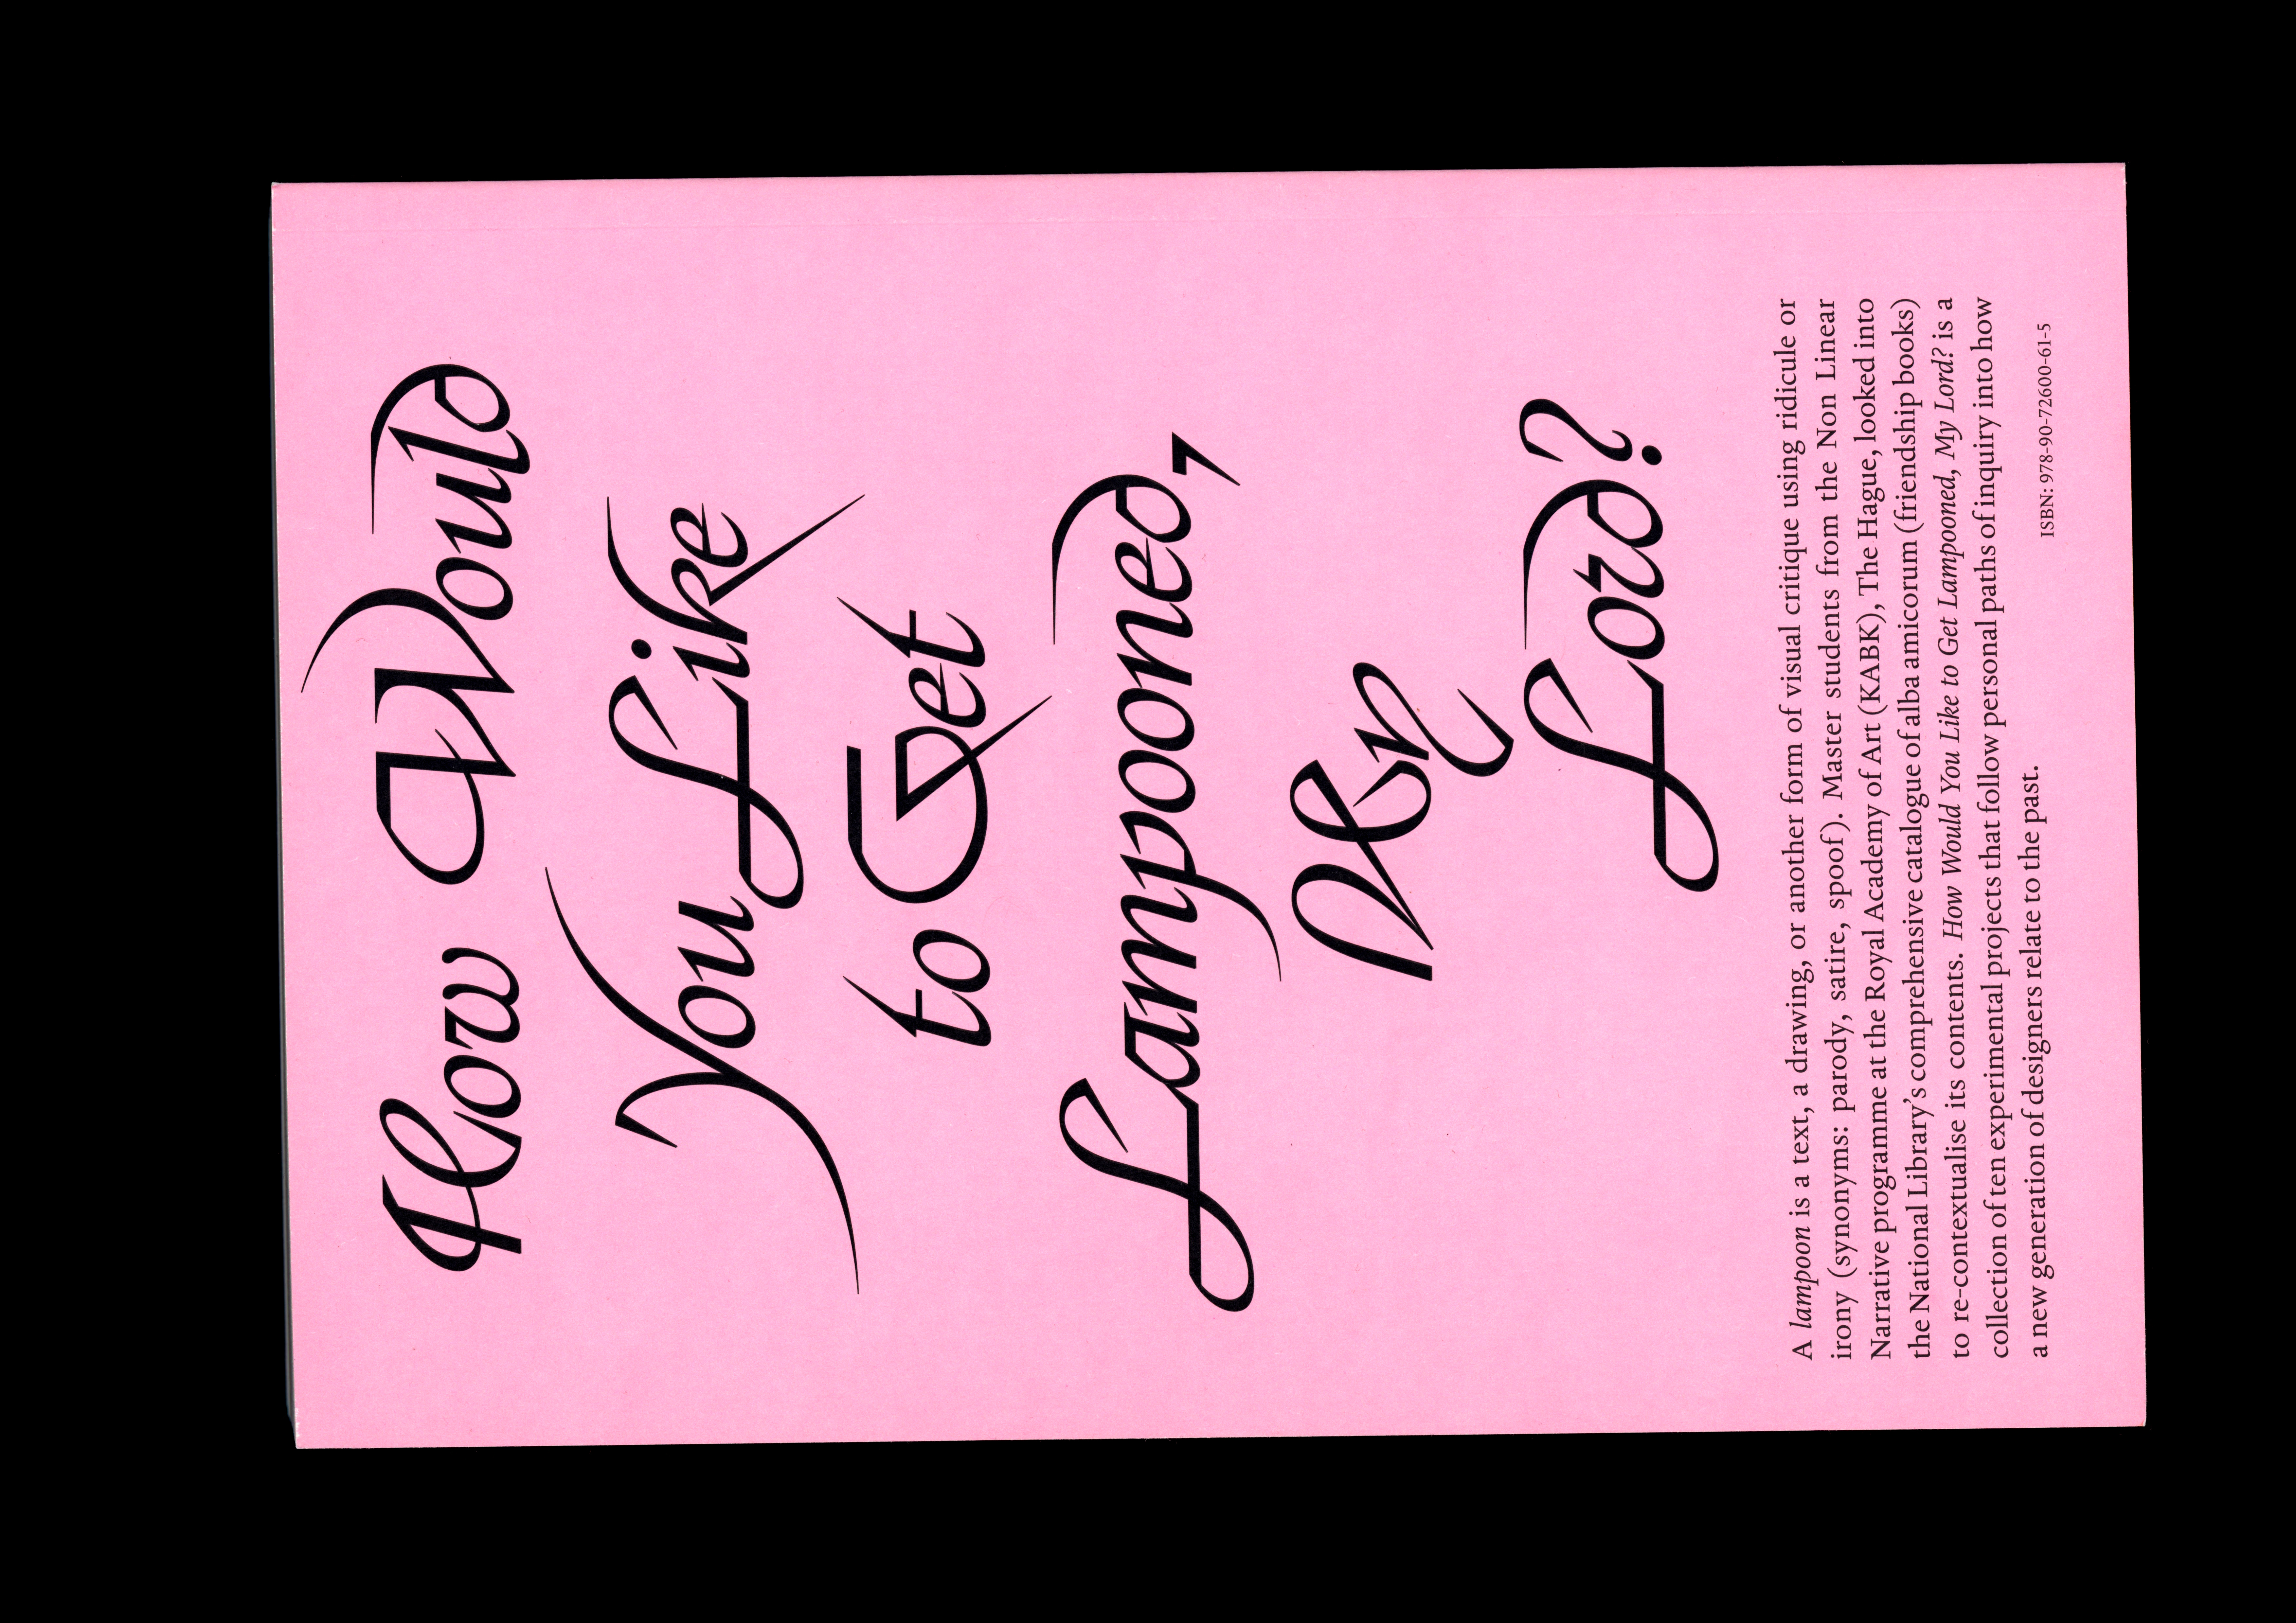 How Would
You Like
to Get
Lampooned,
My
Lord?
A lampoon is a text, a drawing, or another form of visual critique using ridicule or
irony (synonyms: parody, satire, spoof). Master students from the Non Linear
Narrative programme at the Royal Academy of Art (KABK), The Hague, looked into
the National Library’s comprehensive catalogue of alba amicorum (friendship books)
to re-contextualise its contents. How Would You Like to Get Lampooned, My Lord? is a
collection of ten experimental projects that follow personal paths of inquiry into how
a new generation of designers relate to the past.
ISBN: 978-90-72600-61-5